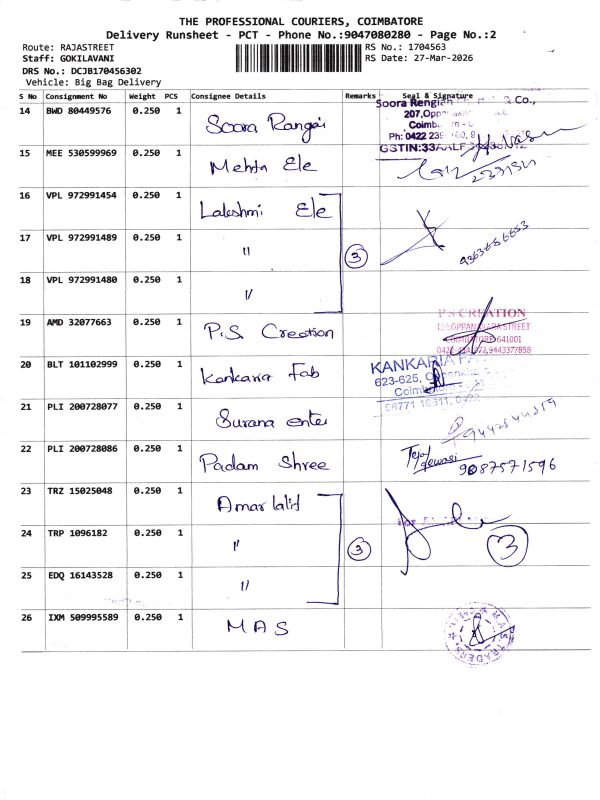 THE PROFESSIONAL COURIERS, COIMBATORE
Delivery Runsheet - PCT - Phone No.:9047080280 - Page No.:2
Route: RAJASTREET
RS No.: 1704563
Staff: GOKILAVANI
RS Date: 27-Mar-2026
DRS No.: DCJB170456302
Vehicle: Big Bag Delivery
S No Consignment No Weight PCS Consignee Details Remarks Seal & Signature
14 BWD 80449576 0.250 1 Soora Rangai
Soora & Co.,
207,
Ph: 0422
GSTIN:33AALF
15 MEE 530599969 0.250 1 Mehta Ele
16 VPL 972991454 0.250 1 Lakshmi Ele
17 VPL 972991489 0.250 1 " 3
18 VPL 972991480 0.250 1 "
19 AMD 32077663 0.250 1 P.S. Creation
P S CREATION
STREET
641001
9443377858
20 BLT 101102999 0.250 1 Kankaria Fab
KANKARIA
623-625,
21 PLI 200728077 0.250 1 Surana enter
22 PLI 200728086 0.250 1 Padam Shree
9087571596
23 TRZ 15025048 0.250 1 Amar lalit
24 TRP 1096182 0.250 1 " 3 3
25 EDQ 16143528 0.250 1 "
26 IXM 509995589 0.250 1 MAS
TRADERS